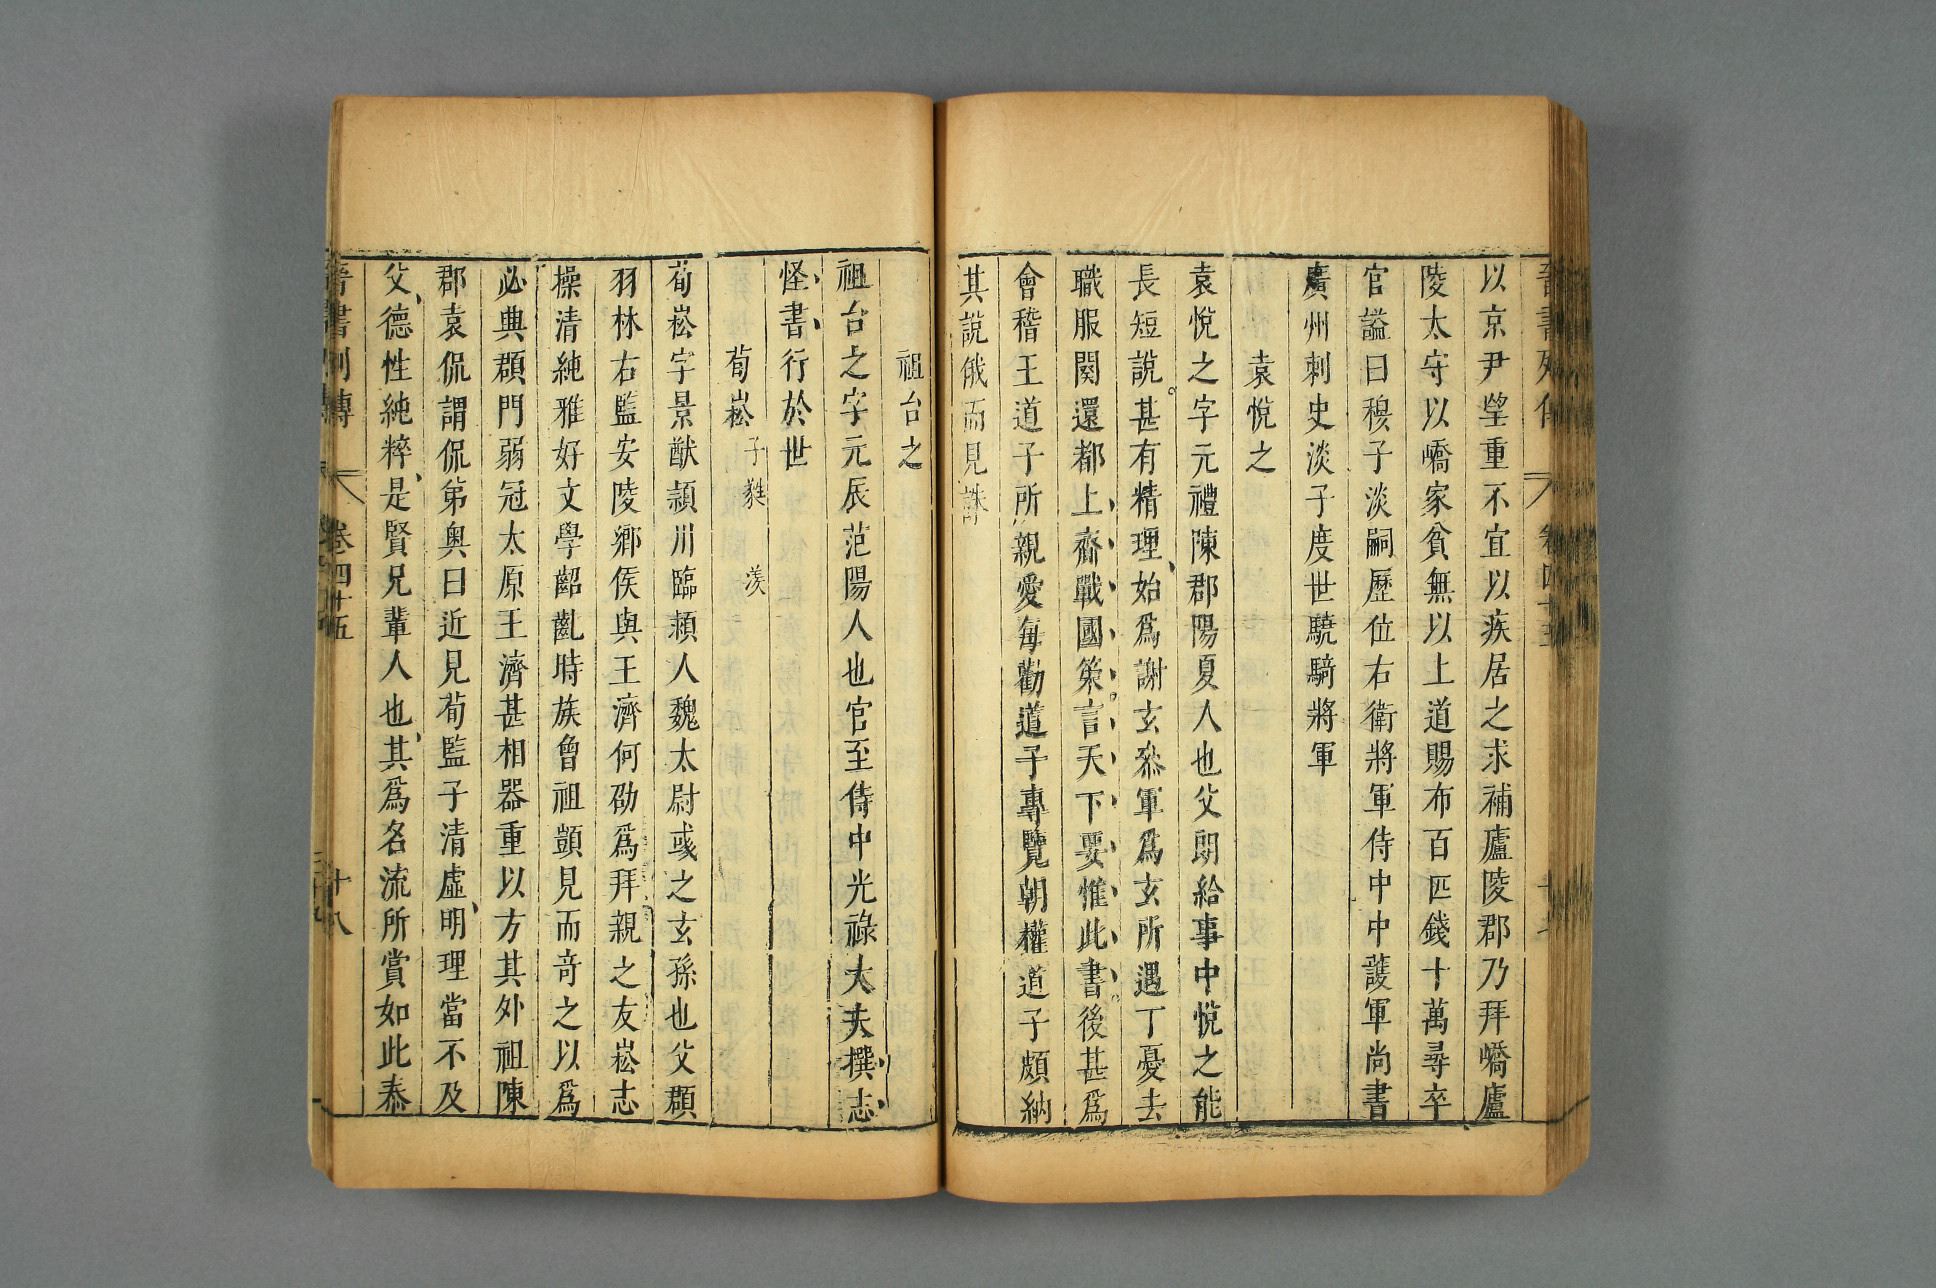 晉書列傳 卷四十五
以京尹望重不宜以疾居之求補廬陵郡乃拜嶠廬
陵太守以嶠家貧無以上道賜布百匹錢十萬尋卒
官謚曰穆子淡嗣歷位右衛將軍侍中中護軍尚書
廣州刺史淡子度世驍騎將軍
袁悅之
袁悅之字元禮陳郡陽夏人也父朗給事中悅之能
長短說甚有精理始爲謝玄叅軍爲玄所遇丁憂去
職服闋還都止齎戰國策言天下要惟此書後甚爲
會稽王道子所親愛每勸道子專覽朝權道子頗納
其說俄而見誅
祖台之
祖台之字元辰范陽人也官至侍中光祿大夫撰志
怪書行於世
荀崧 子蕤 羨
荀崧字景猷潁川臨潁人魏太尉彧之玄孫也父頵
羽林右監安陵鄉侯與王濟何劭爲拜親之友崧志
操清純雅好文學齠齓時族曾祖顗見而奇之以爲
必興頵門弱冠太原王濟甚相器重以方其外祖陳
郡袁侃謂侃弟奥曰近見荀監子清虛明理當不及
父德性純粹是賢兄輩人也其爲名流所賞如此泰
晉書列傳 卷四十五 十八